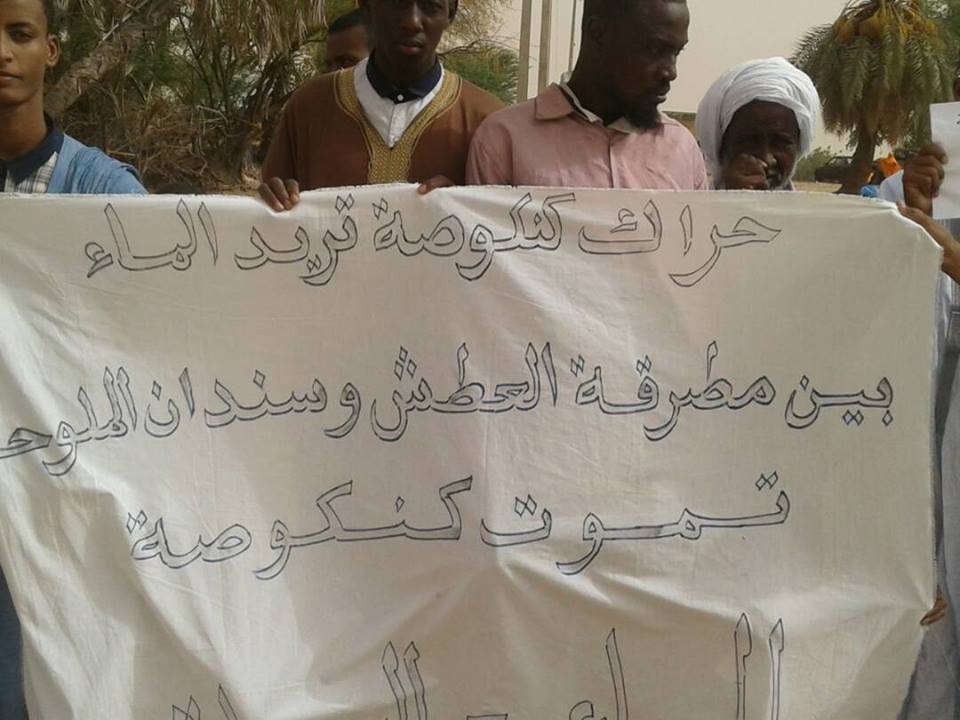 حراك كنكوصة تريد الماء
بين مطرقة العطش وسندان الملوحـ
تموت كنكوصة